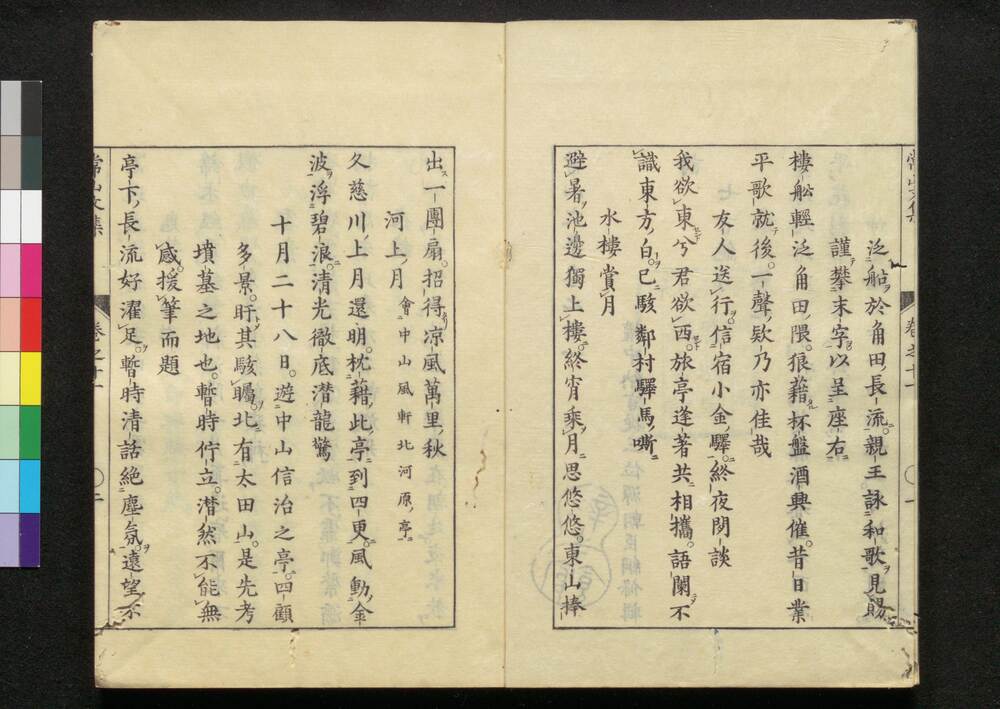 泛船於角田長流親王詠和歌見賜
謹攀末字以呈座右
樓船輕泛角田隈狼藉杯盤酒興催昔日業
平歌就後一聲欵乃亦佳哉
友人送行信宿小金驛終夜閑談
我欲東兮君欲西旅亭逢著共相攜語闌不
識東方白已駭鄰村驛馬嘶
水樓賞月
避暑池邊獨上樓終宵乘月思悠悠東山捧
出一團扇招得凉風萬里秋
河上月 會中山風軒北河原亭
久慈川上月還明枕藉此亭到四更風動金
波浮碧浪清光徹底潜龍驚
十月二十八日遊中山信治之亭四顧
多景盱其駭矚北有太田山是先考
墳墓之地也暫時佇立潜然不能無
感援筆而題
亭下長流好濯足暫時清話絕塵氛遠望不
常山文集
卷之十一
二